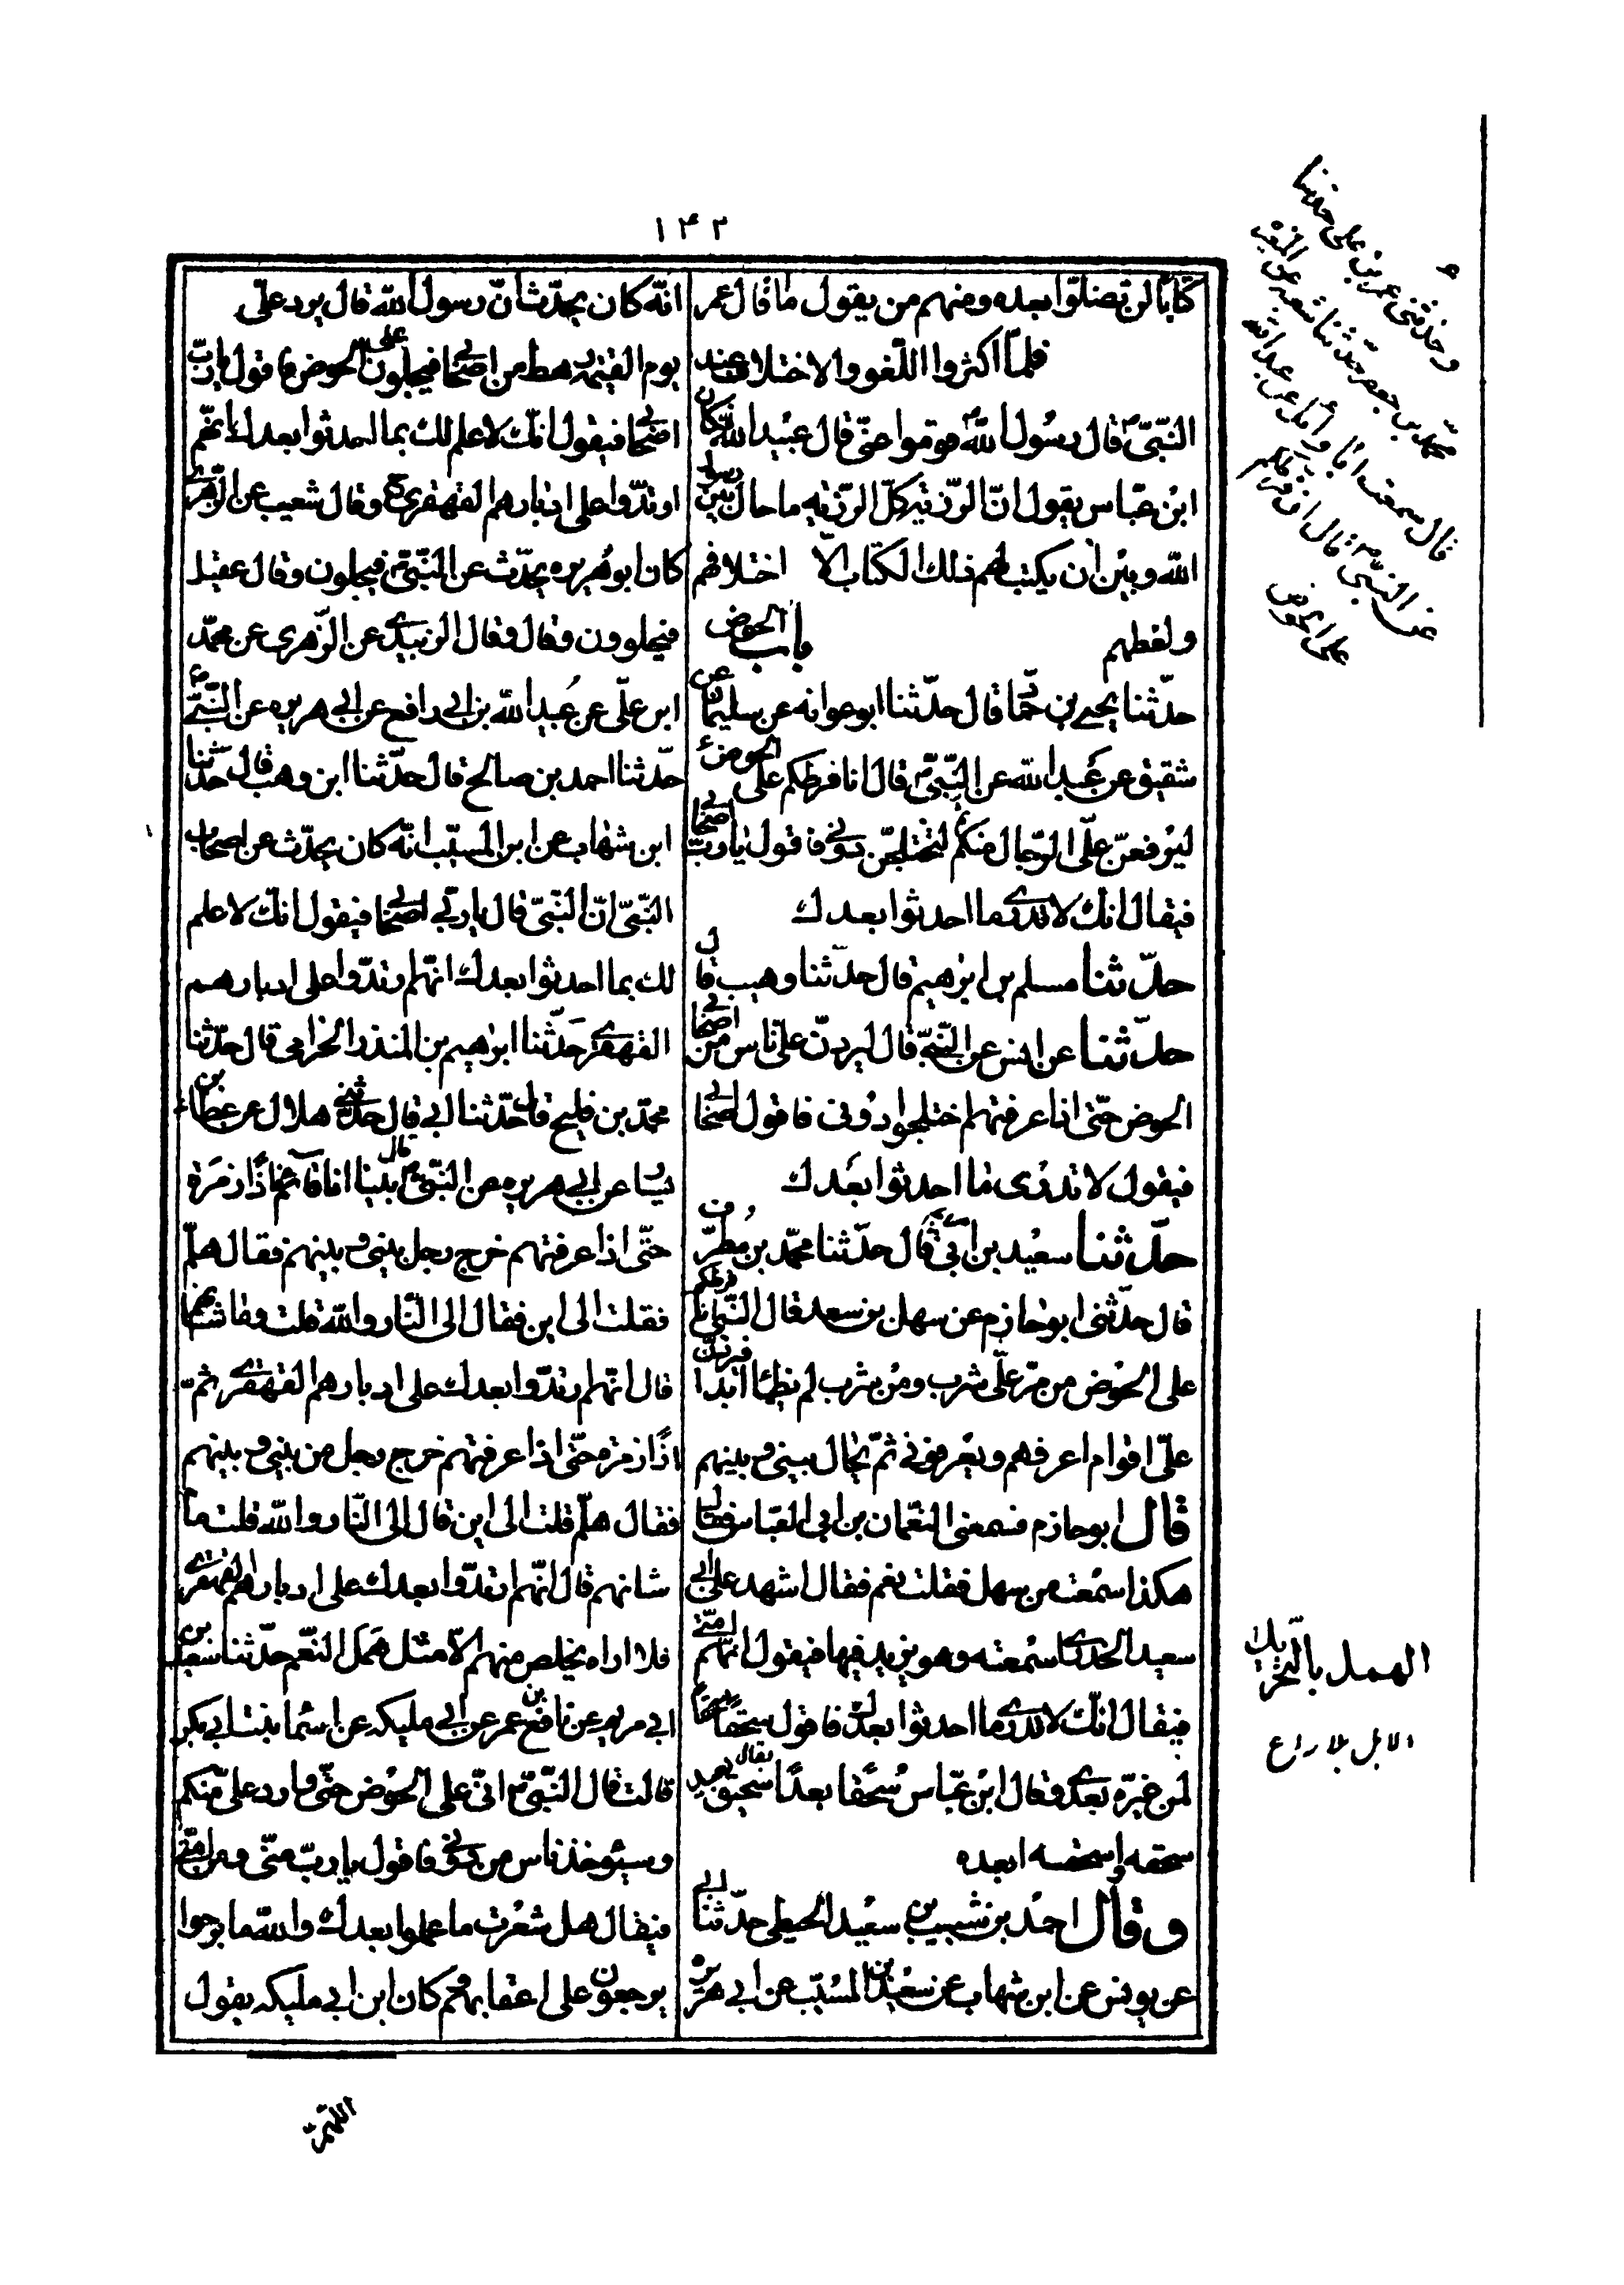 ١٤٣
كتابا لن تضلوا بعده ومنهم من يقول ما قال عمر
فلمّا اكثروا اللّغو والاختلاف عند
النّبىّ قال رسول اللّه قوموا عنّى قال عبيد اللّه فكان
ابن عبّاس يقول انّ الرّزيّة كلّ الرّزيّه ما حال بين رسول
اللّه وبين ان يكتب لهم ذلك الكتاب الّا اختلافهم
ولغطهم باب الحوض
حدّثنا يحيى بن حمّاد قال حدّثنا ابو عوانه عن سليمان عن
شقيق عن عبد اللّه عن النّبىّ قال انا فرطكم على الحوض
ليرفعنّ علىّ الرّجال منكم ثم ليختلجنّ دونى فاقول يا ربّ اصحابى
فيقال انّك لا تدرى ما احدثوا بعدك
حدّثنا مسلم بن ابرهيم قال حدّثنا وهيب قال
حدّثنا عن انس عن النّبىّ قال ليردنّ علىّ ناس من اصحابى
الحوض حتّى اذا عرفتهم اختلجوا دونى فاقول اصحابى
فيقول لا تدرى ما احدثوا بعدك
حدّثنا سعيد بن ابى مريم قال حدّثنا محمّد بن مطرّف
قال حدّثنى ابو حازم عن سهل بن سعد قال النّبى انا فرطكم
على الحوض من مرّ علىّ شرب ومن شرب لم يظمأ ابدا ليردنّ
علىّ اقوام اعرفهم ويعرفونى ثمّ يحال بينى وبينهم
قال ابو حازم فسمعنى النعمان بن ابى العبّاس فقال
هكذا سمعت من سهل فقلت نعم فقال اشهد على ابى
سعيد الخدرى لسمعته وهو يزيد فيها فيقول انّهم امّتى
فيقال انّك لا تدرى ما احدثوا بعدك فاقول سحقا سحقا
لمن غيّره بعدى وقال ابن عبّاس سحقا بعدا يقال سحيق بعيد
سحقه واسحقه ابعده
وقال احمد بن شبيب بن سعيد الحبطى حدّثنا ابى
عن يونس عن ابن شهاب عن سعيد بن المسيّب عن ابى هريره
انّه كان يحدّث انّ رسول اللّه قال يرد علىّ
يوم القيمه رهط من اصحابى فيحلون على الحوض فاقول يا ربّ
اصحابى فيقول انّك لا علم لك بما احدثوا بعدك انّهم
ارتدّوا على ادبارهم القهقرى وقال شعيب عن الزّهرى
كان ابو هريره يحدّث عن النّبىّ فيجلون وقال عقيل
فيحلوون وقال وقال الزبيدى عن الزّهرى عن محمّد
ابن علىّ عن عبيد اللّه بن ابى رافع عن ابى هريره عن النّبىّ
حدّثنا احمد بن صالح قال حدّثنا ابن وهب قال حدّثنا
ابن شهاب عن ابن المسيّب انّه كان يحدّث عن اصحاب
النّبىّ انّ النّبىّ قال يا ربّ اصحابى فيقول انّك لا علم
لك بما احدثوا بعدك انّهم ارتدّوا على ادبارهم
القهقرى حدّثنا ابرهيم بن المنذر الحزامى قال حدّثنا
محمّد بن فليح قال حدّثنا ابى قال حدّثنى هلال عن عطاء بن
يسار عن ابى هريره عن النّبىّ قال بينا انا قائم فاذا زمرة
حتّى اذا عرفتهم خرج رجل بينى وبينهم فقال هلمّ
فقلت الى اين فقال الى النّار واللّه قلت وما شانهم
قال انّهم ارتدّوا بعدك على ادبارهم القهقرى ثمّ
اذا زمرة حتّى اذا عرفتهم خرج رجل من بينى وبينهم
فقال هلمّ قلت الى اين قال الى النّار واللّه قلت ما
شانهم قال انّهم ارتدّوا بعدك على ادبارهم القهقرى
فلا اراه يخلص منهم الّا مثل همل النّعم حدّثنا سعيد بن
ابى مريم عن نافع بن عمر عن ابى مليكه عن اسما بنت ابى بكر
قالت قال النّبىّ انّى على الحوض حتّى ارد علىّ منكم
وسيؤخذ ناس من دونى فاقول يا ربّ منّى ومن امّتى
فيقال هل شعرت ما عملوا بعدك واللّه ما برحوا
يرجعون على اعقابهم فكان ابن ابى مليكه يقول
وحدثنى عمرو بن على حدثنا
محمّد بن جعفر حدّثنا شعبه عن المغيره
قال سمعت ابا وائل عن عبد اللّه
عن النبىّ قال انا فرطكم
على الحوض
الهمل بالتّحريك
الابل بلا راع
اللّهمّ